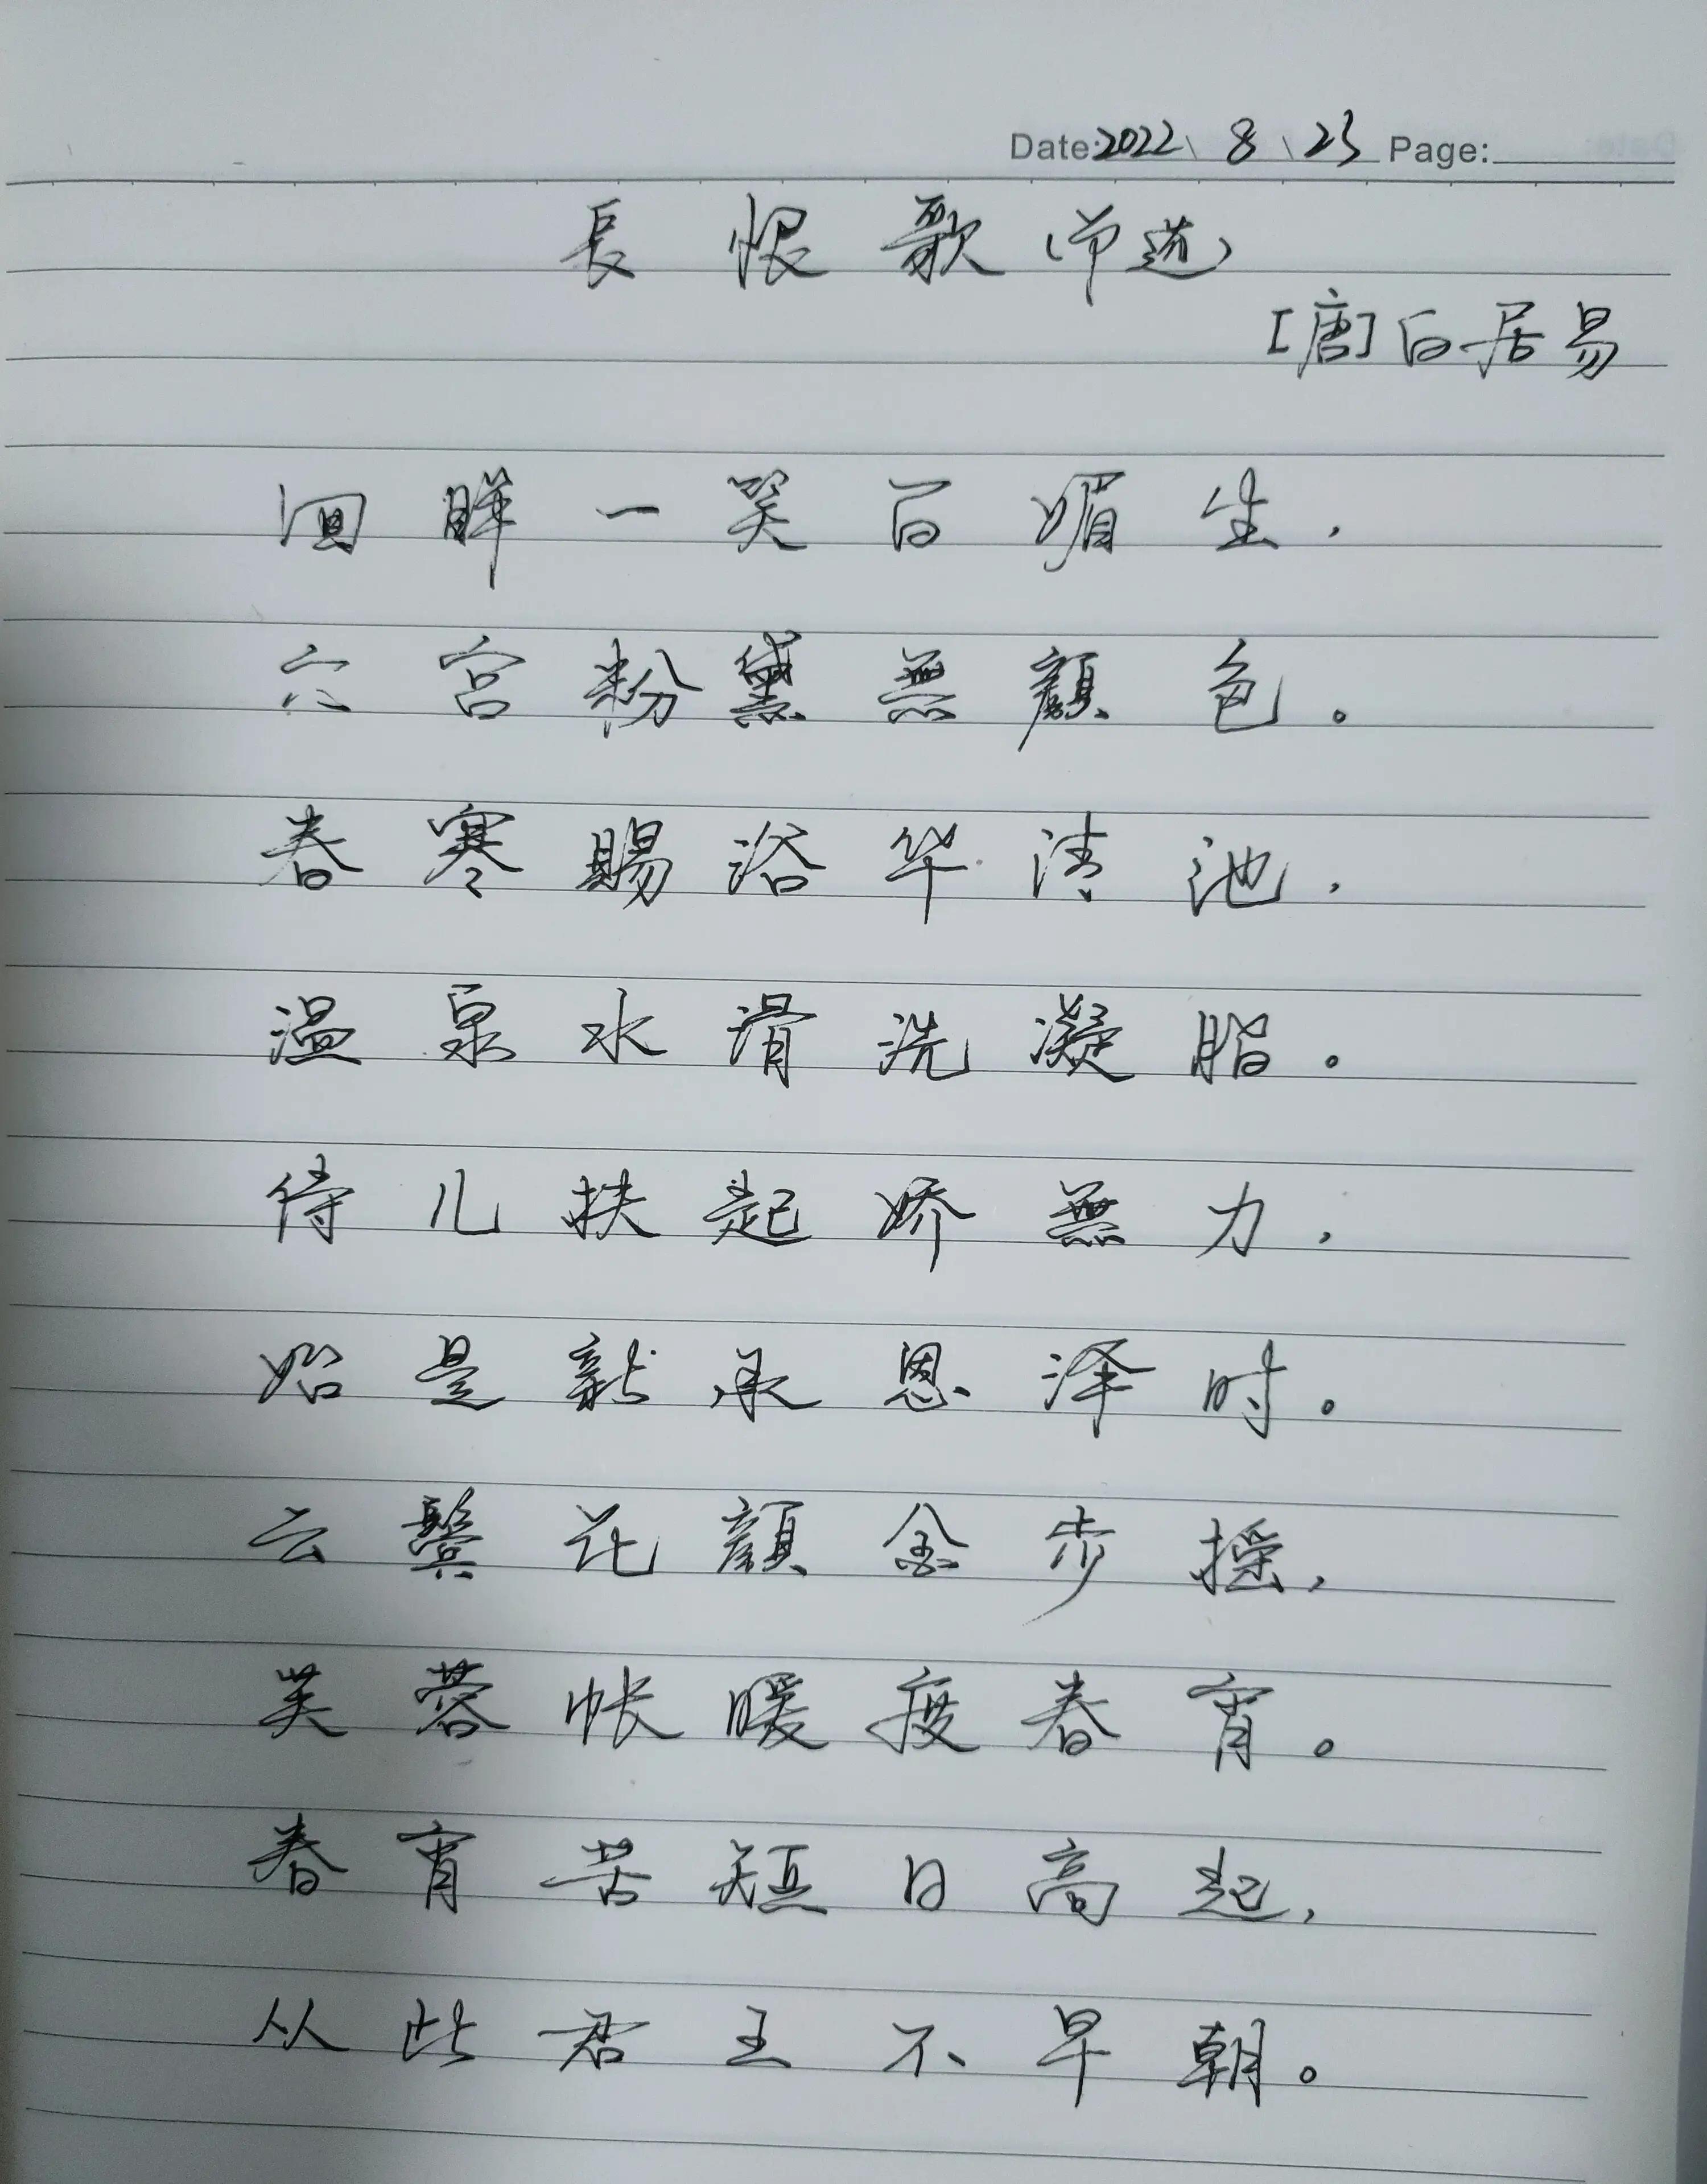 Date: 2022 \ 8 \ 23 Page:
長恨歌(节选)
[唐]白居易
回眸一笑百媚生,
六宫粉黛無顏色。
春寒賜浴华清池,
温泉水滑洗凝脂。
侍儿扶起娇無力,
始是新承恩泽时。
云鬓花顏金步摇,
芙蓉帐暖度春宵。
春宵苦短日高起,
从此君王不早朝。